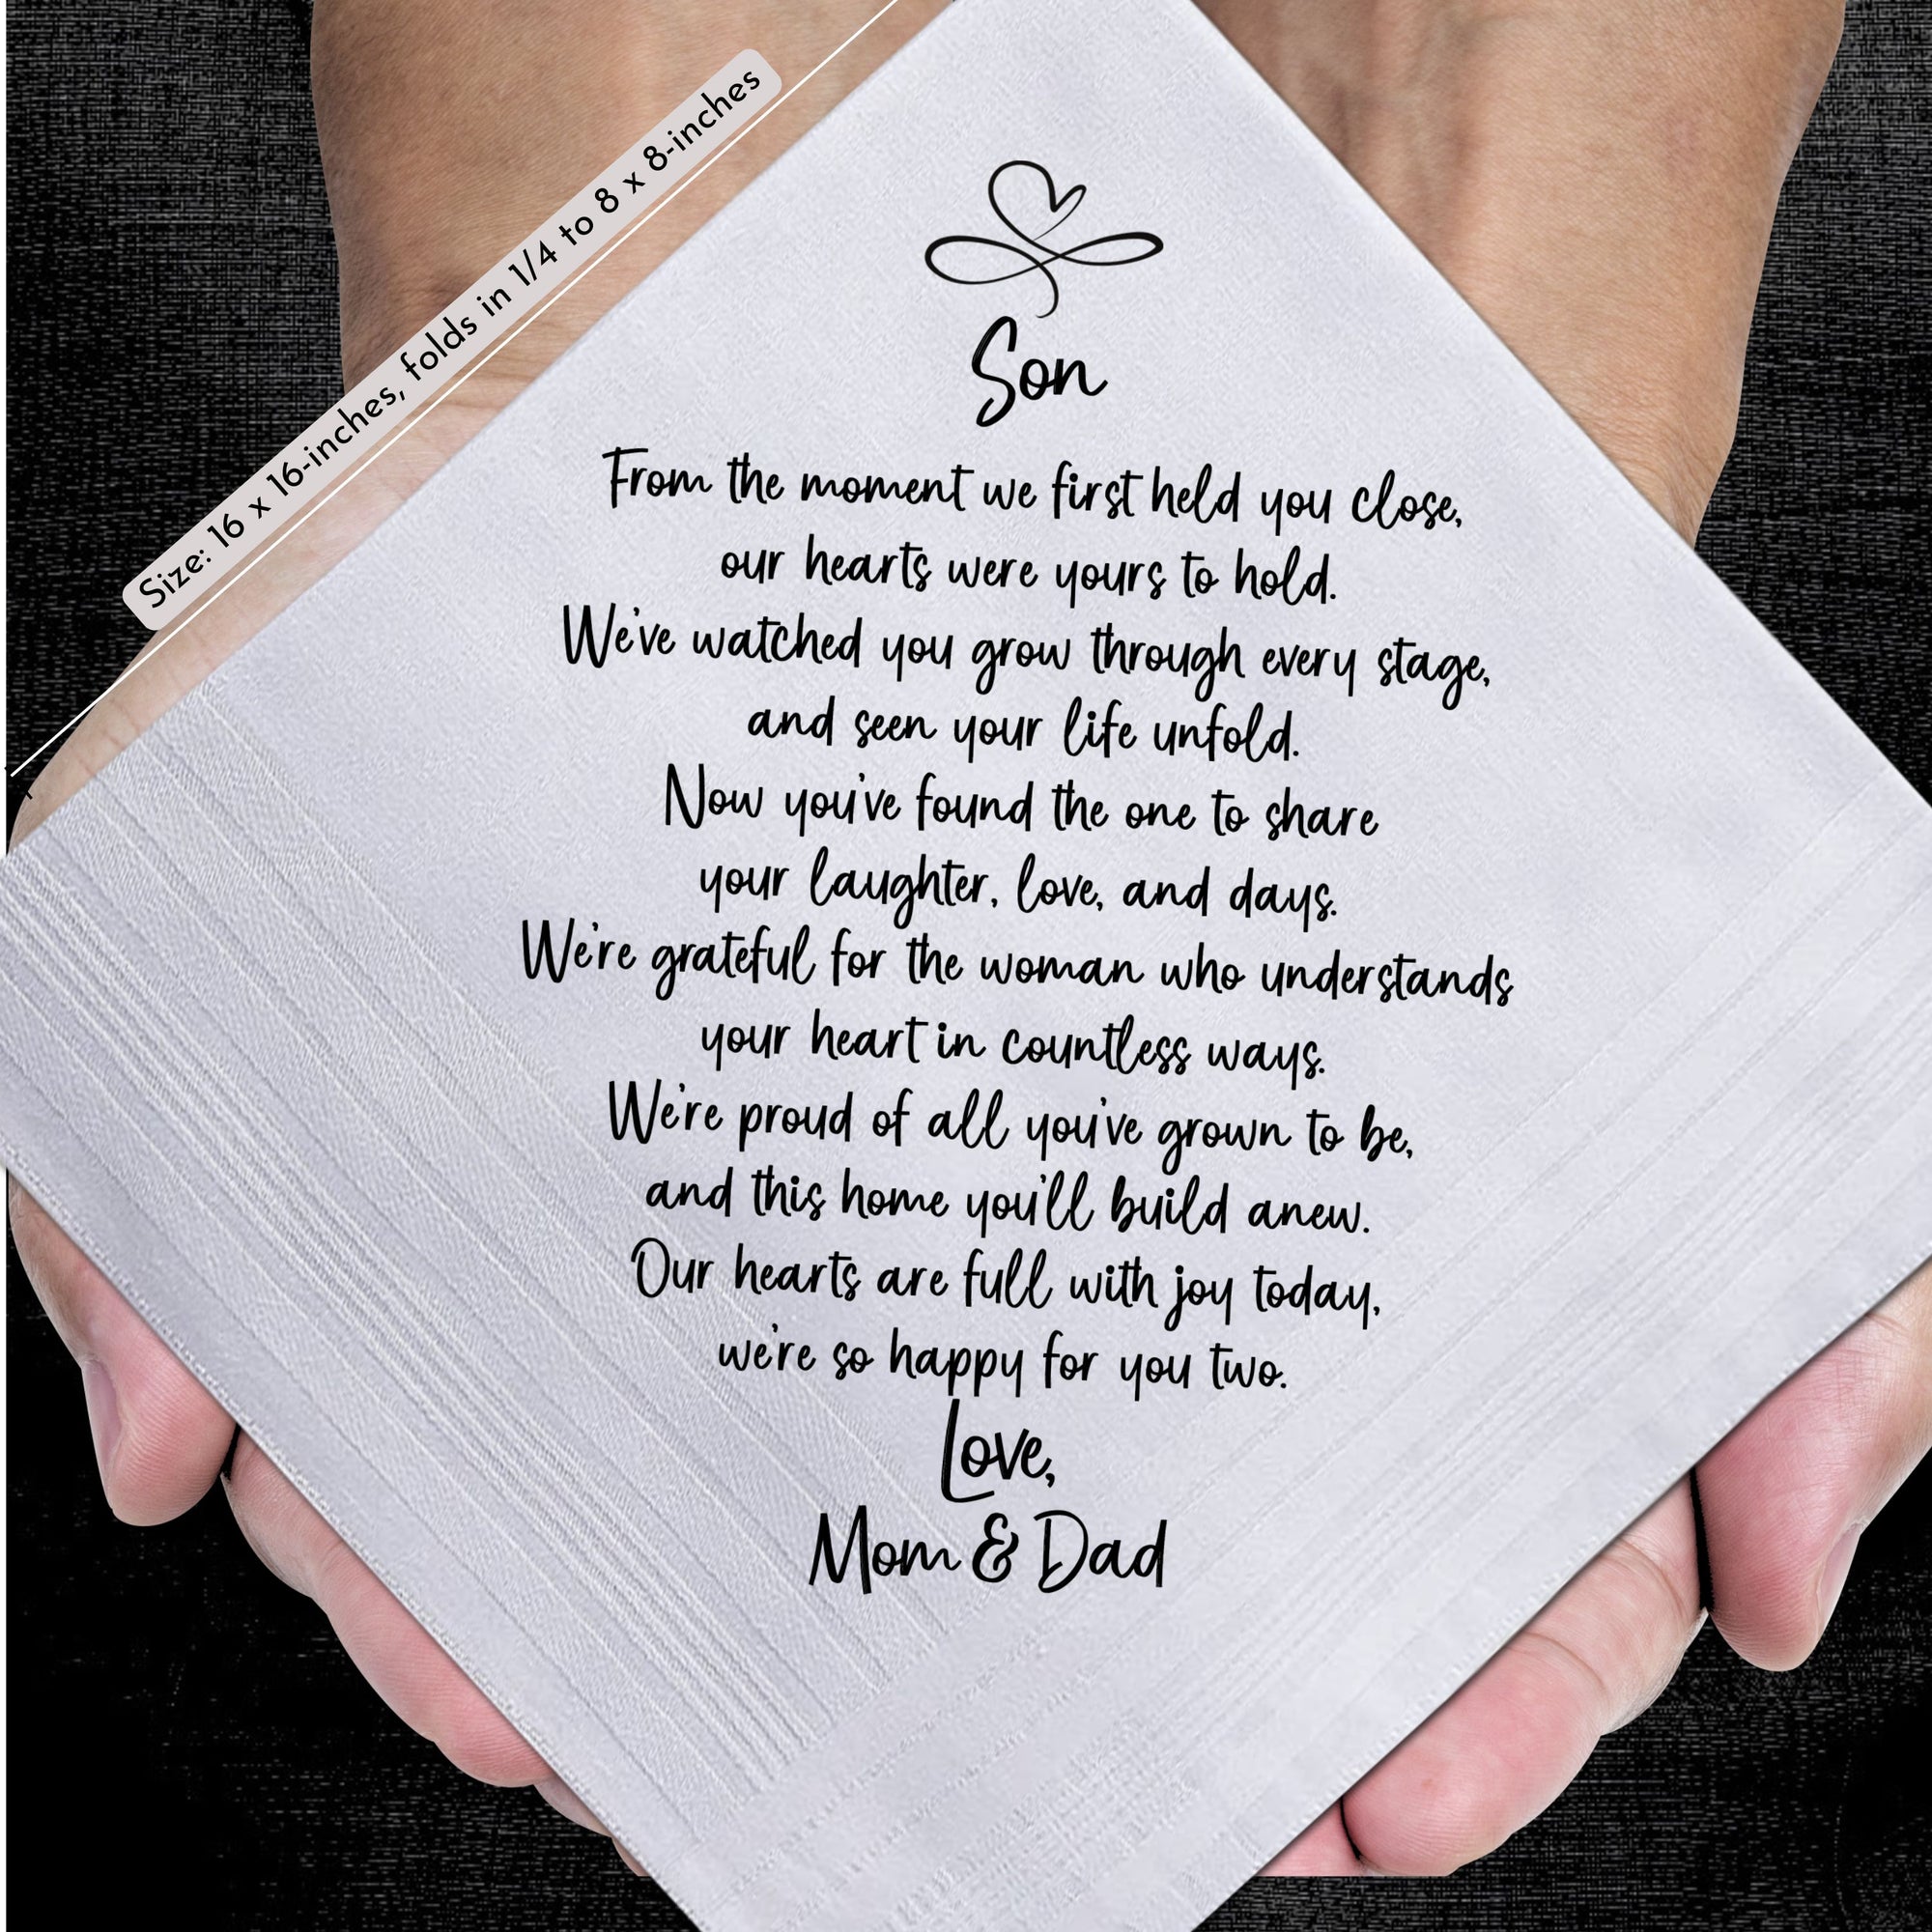 Size: 16 x 16-inches, folds in 1/4 to 8 x 8-inches
Son
From the moment we first held you close,
our hearts were yours to hold.
We've watched you grow through every stage,
and seen your life unfold.
Now you've found the one to share
your laughter, love, and days.
We're grateful for the woman who understands
your heart in countless ways.
We're proud of all you've grown to be,
and this home you'll build anew.
Our hearts are full with joy today,
we're so happy for you two.
Love,
Mom & Dad